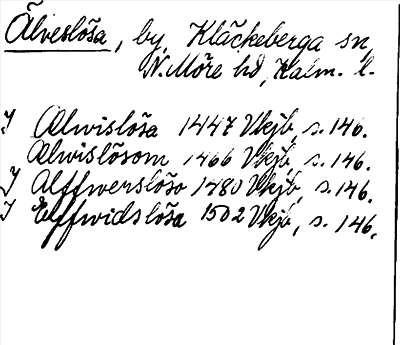 Älveslösa, by, Kläckeberga sn,
N. Möre hd, Kalm. l.
J Alwislösa 1447 Vkjb, s. 146.
Alwislösom 1466 Vkjb, s. 146.
J Alffwerslöso 1480 Vkjb, s. 146.
J Elffwidslösa 1502 Vkjb, s. 146.